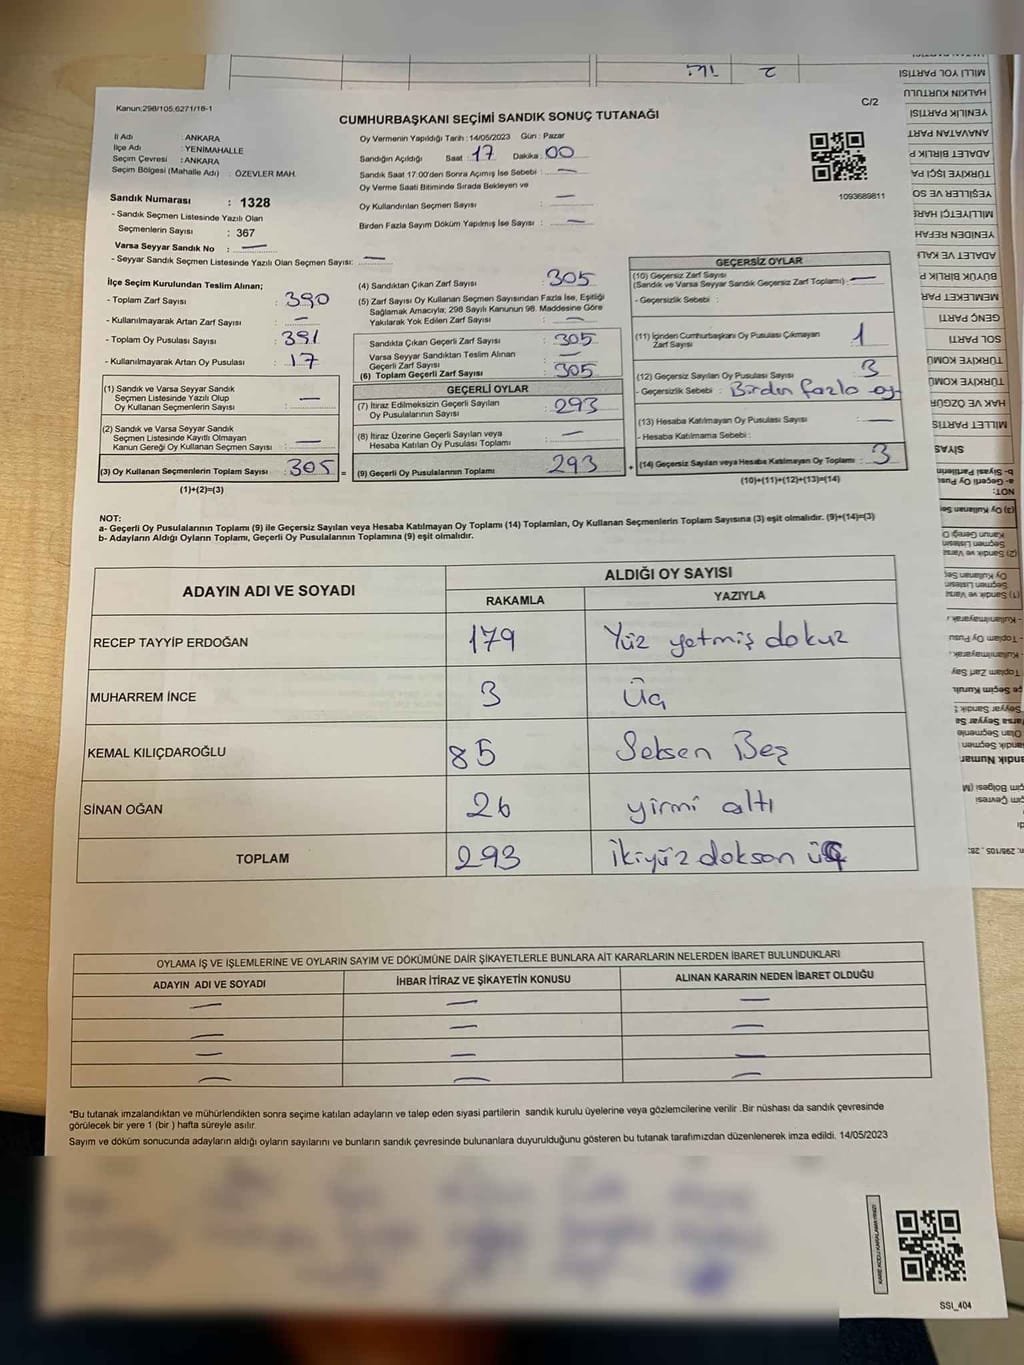 Kanun:298/105,6271/16-1
C/2
CUMHURBAŞKANI SEÇİMİ SANDIK SONUÇ TUTANAĞI
İl Adı : ANKARA
İlçe Adı : YENİMAHALLE
Seçim Çevresi : ANKARA
Seçim Bölgesi (Mahalle Adı) : ÖZEVLER MAH.
Oy Vermenin Yapıldığı Tarih : 14/05/2023 Gün : Pazar
Sandığın Açıldığı Saat : 17 Dakika : 00
Sandık Saat 17:00'den Sonra Açımış İse Sebebi : —
Oy Verme Saati Bitiminde Sırada Bekleyen ve
Oy Kullandırılan Seçmen Sayısı : —
Birden Fazla Sayım Döküm Yapılmış İse Sayısı : —
1093689811
Sandık Numarası : 1328
- Sandık Seçmen Listesinde Yazılı Olan
Seçmenlerin Sayısı : 367
Varsa Seyyar Sandık No : —
- Seyyar Sandık Seçmen Listesinde Yazılı Olan Seçmen Sayısı: —
İlçe Seçim Kurulundan Teslim Alınan;
- Toplam Zarf Sayısı : 390
- Kullanılmayarak Artan Zarf Sayısı : —
- Toplam Oy Pusulası Sayısı : 391
- Kullanılmayarak Artan Oy Pusulası : 17
(1) Sandık ve Varsa Seyyar Sandık
Seçmen Listesinde Yazılı Olup
Oy Kullanan Seçmenlerin Sayısı : —
(2) Sandık ve Varsa Seyyar Sandık
Seçmen Listesinde Kayıtlı Olmayan
Kanun Gereği Oy Kullanan Seçmen Sayısı : —
(3) Oy Kullanan Seçmenlerin Toplam Sayısı : 305 =
(1)+(2)=(3)
(4) Sandıktan Çıkan Zarf Sayısı : 305
(5) Zarf Sayısı Oy Kullanan Seçmen Sayısından Fazla İse, Eşitliği
Sağlamak Amacıyla; 298 Sayılı Kanunun 98. Maddesine Göre
Yakılarak Yok Edilen Zarf Sayısı : —
Sandıkta Çıkan Geçerli Zarf Sayısı : 305
Varsa Seyyar Sandıktan Teslim Alınan
Geçerli Zarf Sayısı : —
(6) Toplam Geçerli Zarf Sayısı : 305
GEÇERLİ OYLAR
(7) İtiraz Edilmeksizin Geçerli Sayılan
Oy Pusulalarının Sayısı : 293
(8) İtiraz Üzerine Geçerli Sayılan veya
Hesaba Katılan Oy Pusulası Toplamı : —
(9) Geçerli Oy Pusulalarının Toplamı : 293 +
GEÇERSİZ OYLAR
(10) Geçersiz Zarf Sayısı
(Sandık ve Varsa Seyyar Sandık Geçersiz Zarf Toplamı) : —
- Geçersizlik Sebebi :
(11) İçinden Cumhurbaşkanı Oy Pusulası Çıkmayan
Zarf Sayısı : 1
(12) Geçersiz Sayılan Oy Pusulası Sayısı : 3
- Geçersizlik Sebebi : Birden fazla oy
(13) Hesaba Katılmayan Oy Pusulası Sayısı : —
- Hesaba Katılmama Sebebi :
(14) Geçersiz Sayılan veya Hesaba Katılmayan Oy Toplamı : 3
(10)+(11)+(12)+(13)=(14)
NOT:
a- Geçerli Oy Pusulalarının Toplamı (9) ile Geçersiz Sayılan veya Hesaba Katılmayan Oy Toplamı (14) Toplamları, Oy Kullanan Seçmenlerin Toplam Sayısına (3) eşit olmalıdır. (9)+(14)=(3)
b- Adayların Aldığı Oyların Toplamı, Geçerli Oy Pusulalarının Toplamına (9) eşit olmalıdır.
ADAYIN ADI VE SOYADI
ALDIĞI OY SAYISI
RAKAMLA YAZIYLA
RECEP TAYYİP ERDOĞAN 179 Yüz yetmiş dokuz
MUHARREM İNCE 3 Üç
KEMAL KILIÇDAROĞLU 85 Seksen Beş
SİNAN OĞAN 26 yirmi altı
TOPLAM 293 ikiyüz doksan üç
OYLAMA İŞ VE İŞLEMLERİNE VE OYLARIN SAYIM VE DÖKÜMÜNE DAİR ŞİKAYETLERLE BUNLARA AİT KARARLARIN NELERDEN İBARET BULUNDUKLARI
ADAYIN ADI VE SOYADI İHBAR İTİRAZ VE ŞİKAYETİN KONUSU ALINAN KARARIN NEDEN İBARET OLDUĞU
— — —
— — —
— — —
— — —
*Bu tutanak imzalandıktan ve mühürlendikten sonra seçime katılan adayların ve talep eden siyasi partilerin sandık kurulu üyelerine veya gözlemcilerine verilir .Bir nüshası da sandık çevresinde
görülecek bir yere 1 (bir ) hafta süreyle asılır.
Sayım ve döküm sonucunda adayların aldığı oyların sayılarını ve bunların sandık çevresinde bulunanlara duyurulduğunu gösteren bu tutanak tarafımızdan düzenlenerek imza edildi. 14/05/2023
SSI_404
MİLLİ YOL PARTİSİ 2 iki
HALKIN KURTULU
YENİLİK PARTİSİ
ANAVATAN PART
ADALET BİRLİK P
TÜRKİYE İŞÇİ PA
YEŞİLLER VE SO
MİLLİYETÇİ HARE
YENİDEN REFAH
ADALET VE KALK
BÜYÜK BİRLİK P
MEMLEKET PAR
GENÇ PARTİ
SOL PARTİ
TÜRKİYE KOMÜ
TÜRKİYE KOMÜ
HAK VE ÖZGÜR
MİLLET PARTİS
SİYAS